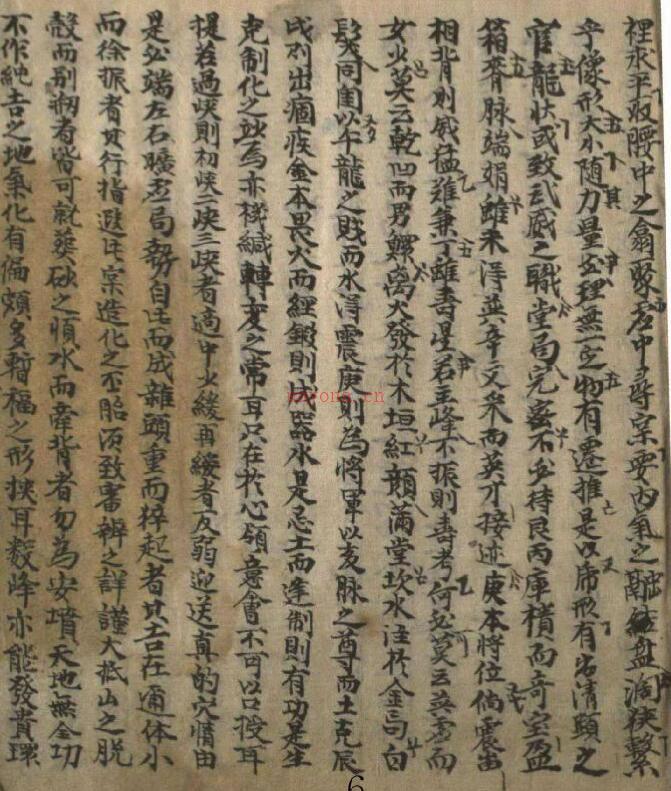 裡求平阪腰中之翕聚老中尋窠要內氣之融結盤澗狹繫
乎像形大小隨力量必理無一定物有遷推是以席形有劣清顯之
官龍伏或致武威之職堂局完蓋不必待艮丙庫橫而奇室盈
箱脊脉端娟雖未淂巽辛文采而英才接迹庚本將位倘震
相背則威猛難兼丁雖壽星若主峰不振則壽考何必莫云英
女必莫云乾凹而男鰥离火發於木垣紅顏滿堂坎水注於金局白
髮同閨以午龍之賤而水淂震庚則為將軍以亥脉之尊而土克辰
戌則出痼疾金本畏火而經鍛則成器水是忌土而逢制則有功是生
克制化之妙為亦機緘轉变之常耳只在於心領意會不可以口授耳
提若過峽則初峽二峽三峽者適中必緩再緩者反弱迎送真的穴情由
是必端左右曠李局勢自正而成雜頭重而猝起者其吉在通体小
而徐振者其行指遐此案造化之丕胎須致審辨之詳謹大抵山之脫
殼而剥初者皆可就葬砂之順水而牽背者勿為安墳天地無全功
不作純吉之地氣化有偏頗多暫福之形挾耳数峰亦能發貴環
6